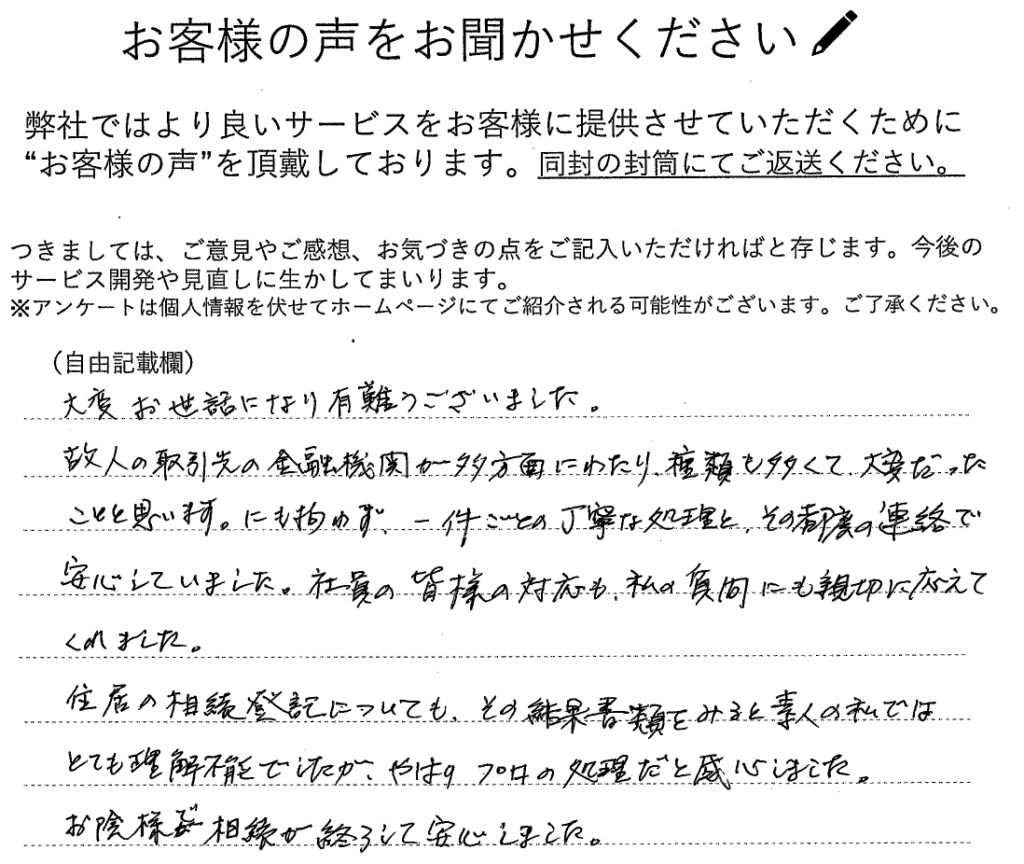 お客様の声をお聞かせください
弊社ではより良いサービスをお客様に提供させていただくために
“お客様の声”を頂戴しております。同封の封筒にてご返送ください。
つきましては、ご意見やご感想、お気づきの点をご記入いただければと存じます。今後の
サービス開発や見直しに生かしてまいります。
※アンケートは個人情報を伏せてホームページにてご紹介される可能性がございます。ご了承ください。
（自由記載欄）
大変お世話になり有難うございました。
故人の取引先の金融機関が多方面にわたり、種類も多くて、大変だった
ことと思います。にも拘わず、一件ごとの丁寧な処理と、その都度の連絡で
安心していました。社員の皆様の対応も、私の質問にも親切に応えて
くれました。
住居の相続登記についても、その結果書類をみると素人の私では
とても理解不能でしたが、やはりプロの処理だと感心しました。
お陰様で相続が終了して安心しました。